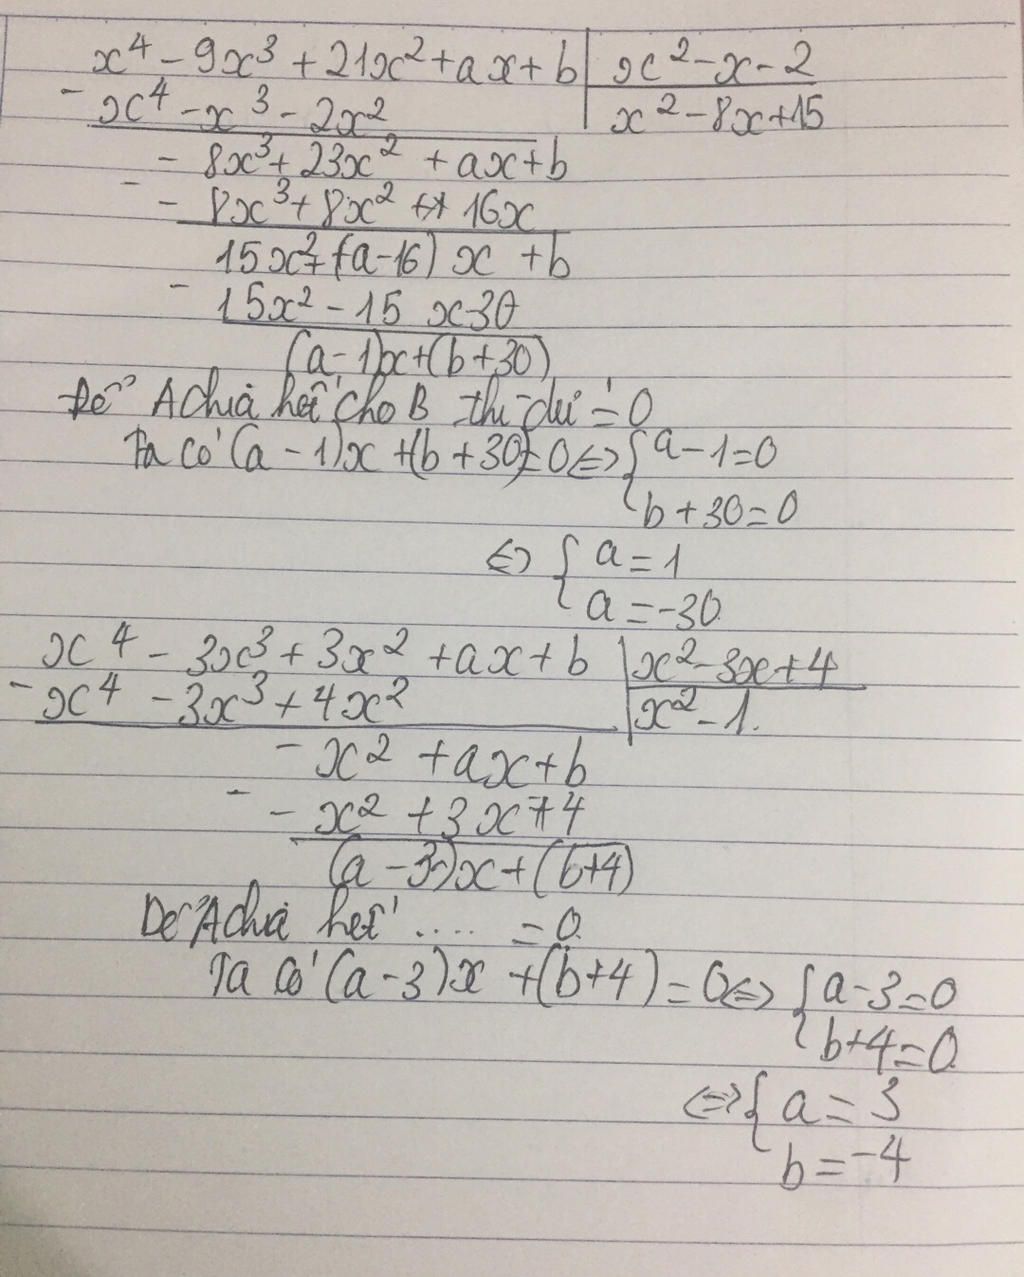 x⁴ - 9x³ + 21x² + ax + b | x² - x - 2
- x⁴ - x³ - 2x² | x² - 8x + 15
- 8x³ + 23x² + ax + b
- - 8x³ + 8x² + 16x
15x² + (a - 16) x + b
- 15x² - 15 x - 30
(a - 1)x + (b + 30)
Để A chia hết cho B thì dư = 0
Ta có (a - 1)x + (b + 30) = 0 <=> { a - 1 = 0
b + 30 = 0
<=> { a = 1
a = -30
x⁴ - 3x³ + 3x² + ax + b | x² - 3x + 4
- x⁴ - 3x³ + 4x² | x² - 1.
- x² + ax + b
- - x² + 3x + 4
(a - 3)x + (b + 4)
Để A chia hết .... = 0
Ta có (a - 3)x + (b + 4) = 0 <=> { a - 3 = 0
b + 4 = 0
<=> { a = 3
b = -4